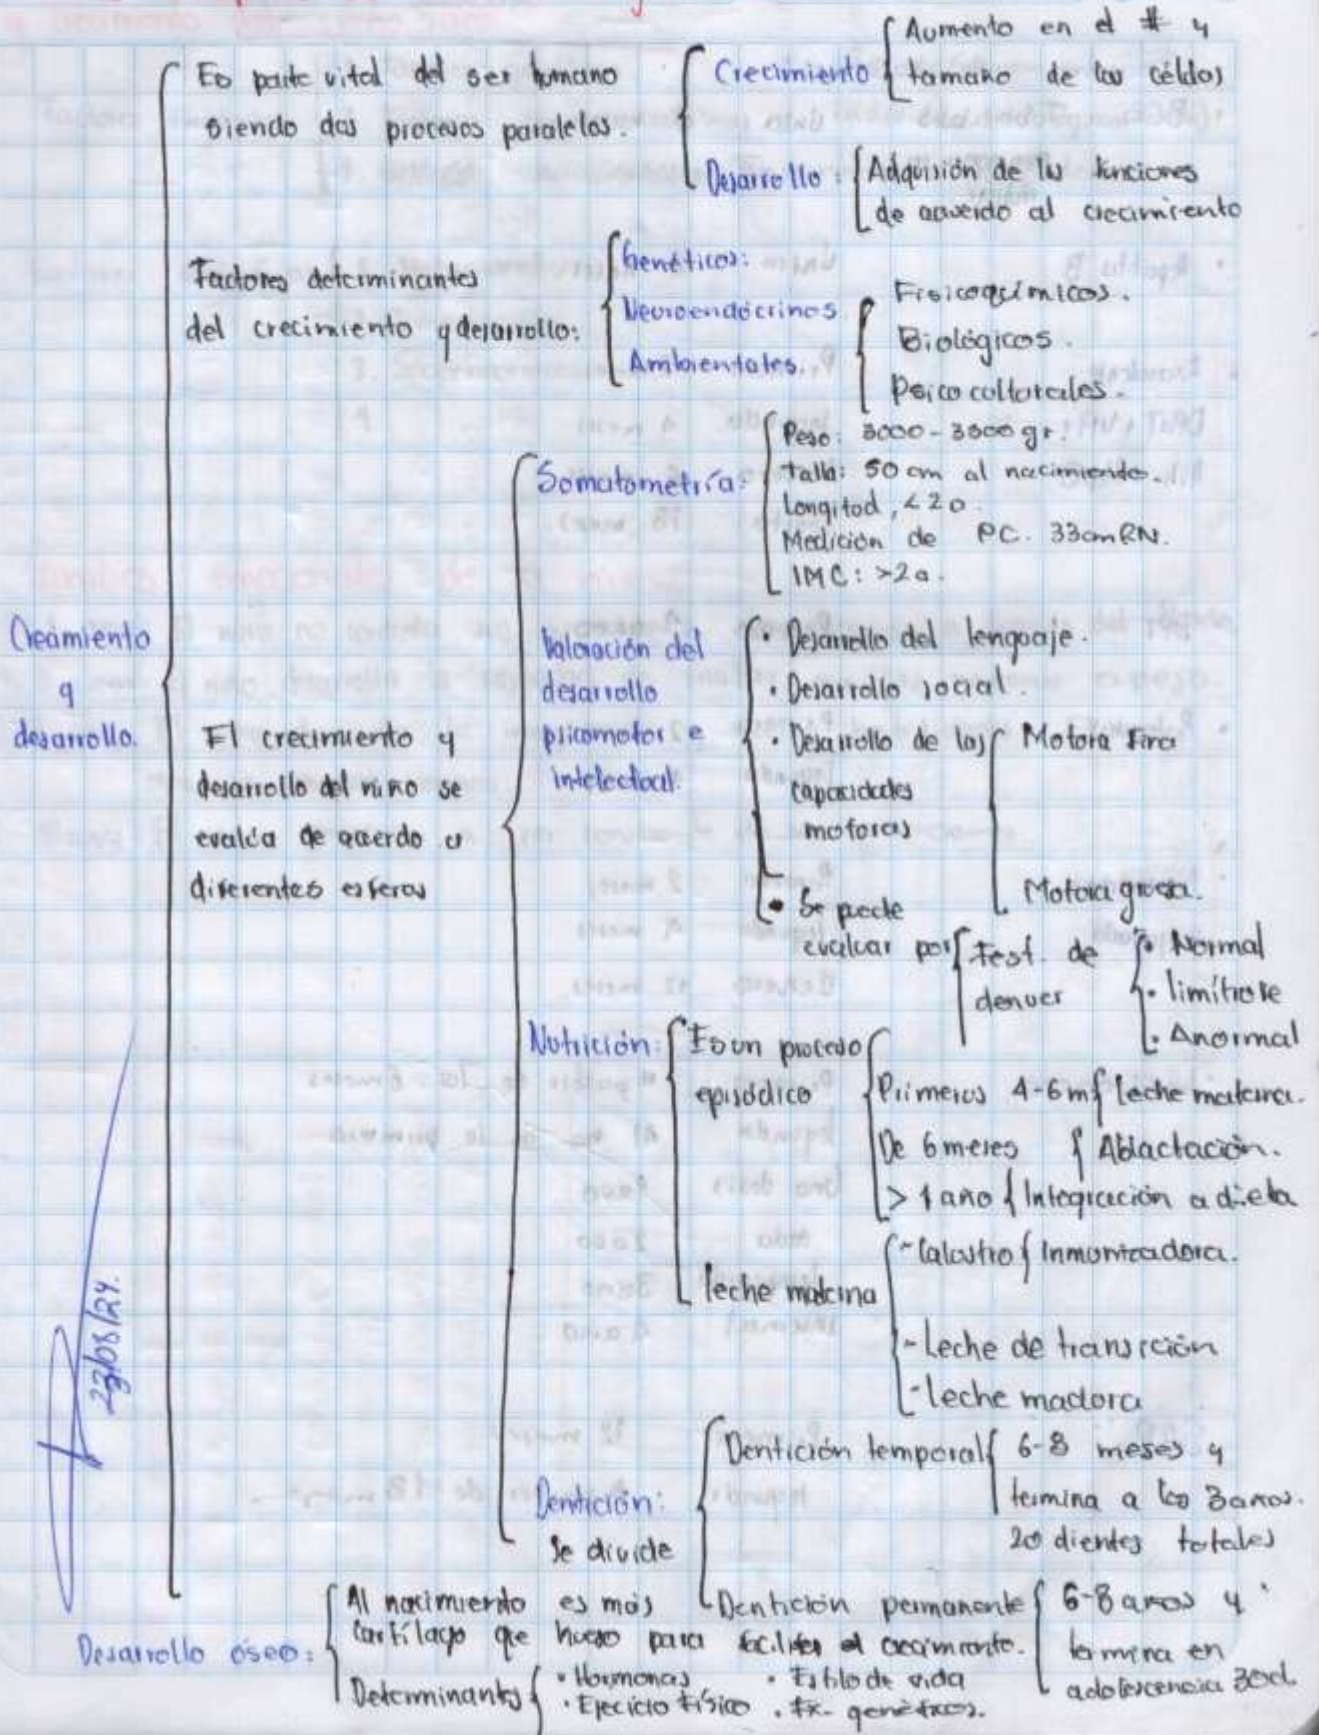 Es parte vital del ser humano
siendo dos procesos paralelos.
Crecimiento
Aumento en el # y
tamaño de las células
Desarrollo:
Adquisión de las funciones
de acuerdo al crecimiento
Factores determinantes
del crecimiento y desarrollo:
Genéticos:
Neuroendócrinos
Ambientales.
Fisicoquímicos.
Biológicos.
Psicoculturales.
Crecimiento
y
desarrollo.
El crecimiento y
desarrollo del niño se
evalúa de acuerdo a
diferentes esferas
Somatometría:
Peso: 3000-3500 gr.
talla: 50 cm al nacimiento.
Longitud, <2a.
Medición de PC. 33cm RN.
IMC: >2a.
Valoración del
desarrollo
psicomotor e
intelectual.
• Desarrollo del lenguaje.
• Desarrollo social.
• Desarrollo de las
capacidades
motoras
Motora Fina
Motora gruesa.
• Se puede
evaluar por
Test de
denver
• Normal
• limítrofe
• Anormal
Nutrición:
Es un proceso
episódico
Primeros 4-6 m { leche materna.
De 6 meses { Ablactación.
> 1 año { Integración a dieta
leche materna
- Calostro { Inmunizadora.
- Leche de transición
- leche madura
Dentición:
se divide
Dentición temporal
6-8 meses y
termina a los 3 años.
20 dientes totales
Dentición permanente
6-8 años y
termina en
adolescencia 30d.
Desarrollo óseo:
Al nacimiento es más
cartílago que hueso para facilitar el crecimiento.
Determinantes
• Hormonas • Estilo de vida
• Ejecicio físico • Fx. genéticos.
23/08/24.